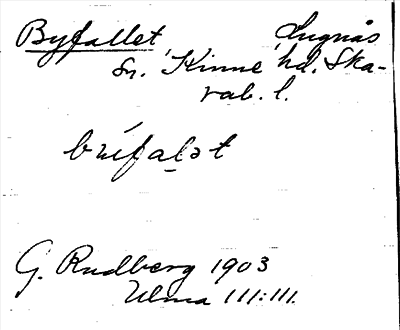 Byfallet Lugnås
Sn. Kinne hd. Ska-
rab. l.
bẏ́falət
G. Rudberg 1903
Ulma 111:111.